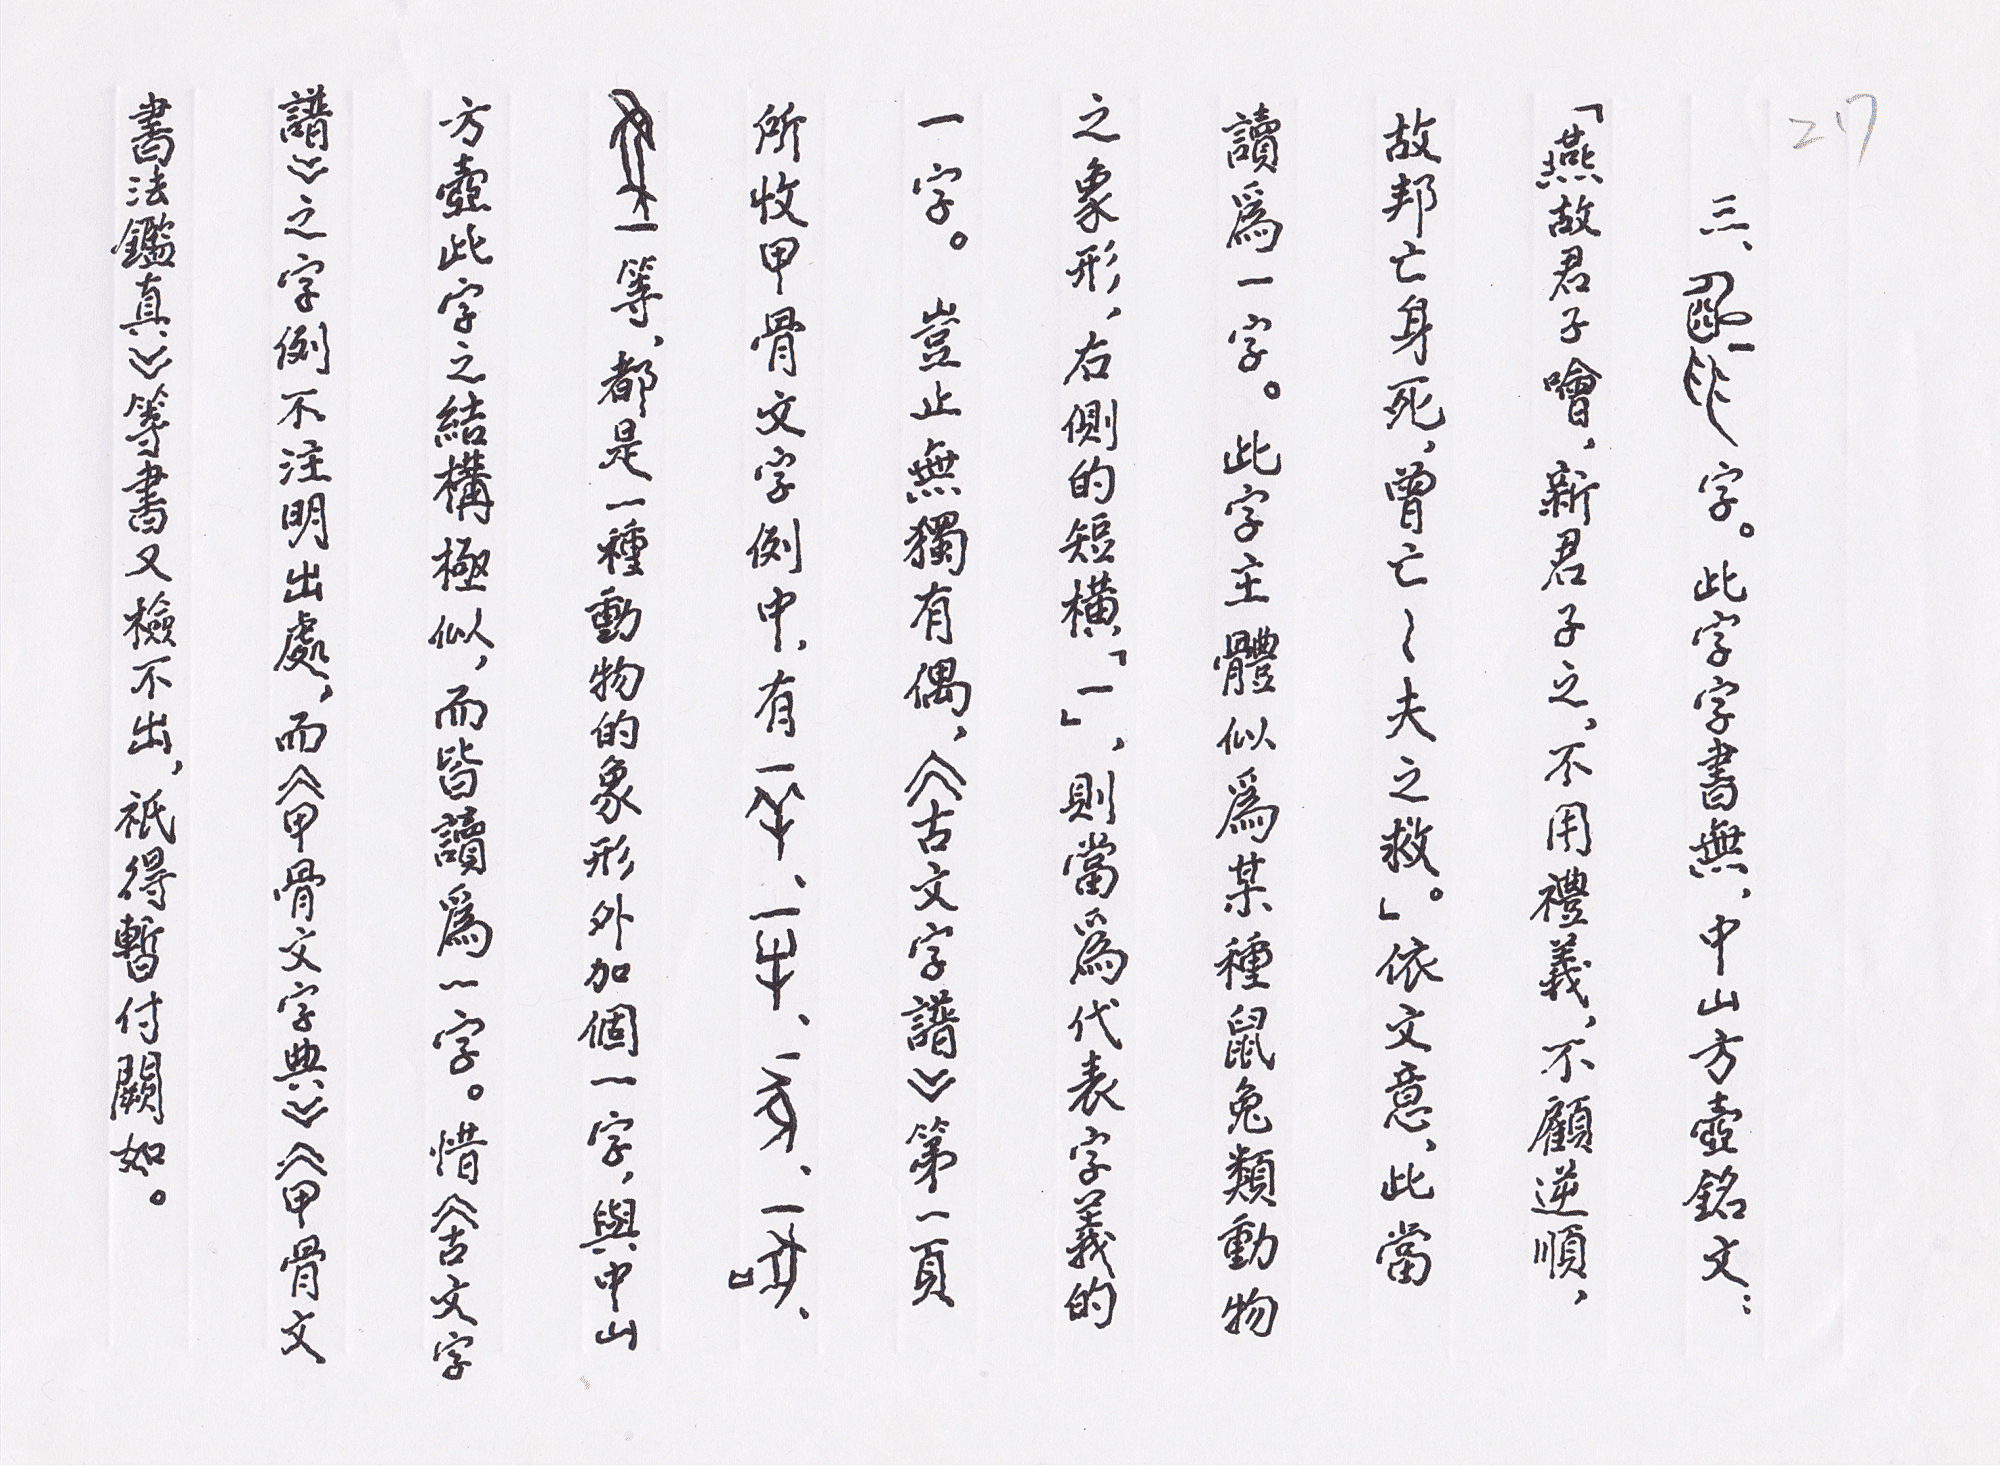 27
三、字。此字字書無，中山方壺銘文：
「燕故君子噲，新君子之，不用禮義，不顧逆順，
故邦亡身死，曾亡～夫之救。」依文意，此當
讀爲一字。此字主體似爲某種鼠兔類動物
之象形，右側的短橫「一」，則當爲代表字義的
一字。豈止無獨有偶，《古文字譜》第一頁
所收甲骨文字例中，有、、、、
等，都是一種動物的象形外加個一字，與中山
方壺此字之結構極似，而皆讀爲一字。惜《古文字
譜》之字例不注明出處，而《甲骨文字典》《甲骨文
書法鑑真》等書又檢不出，祇得暫付闕如。